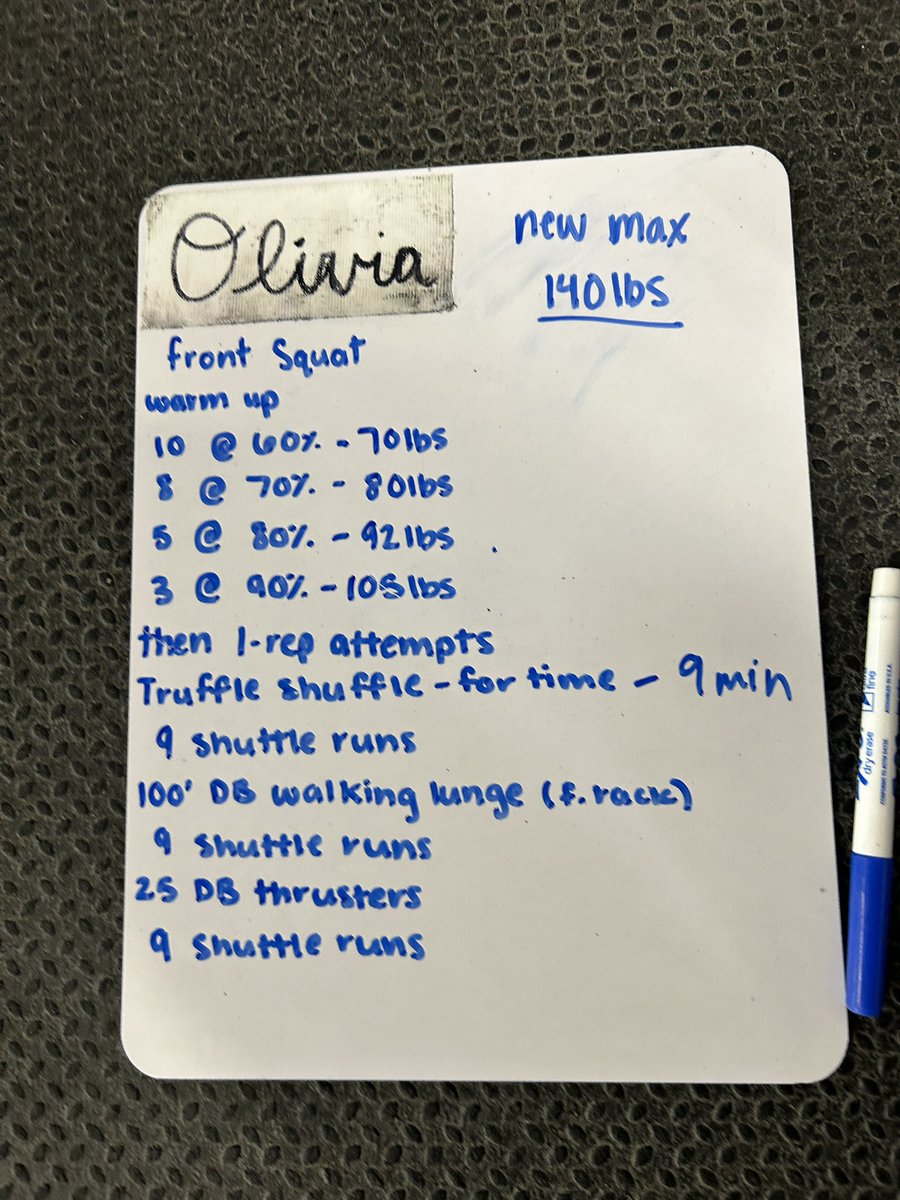 Olivia
new max
140lbs
front Squat
warm up
10 @ 60% - 70lbs
8 @ 70% - 80lbs
5 @ 80% - 92lbs
3 @ 90% - 105lbs
then 1-rep attempts
Truffle shuffle - for time - 9 min
9 shuttle runs
100' DB walking lunge (f. rack)
9 shuttle runs
25 DB thrusters
9 shuttle runs
dry erase
fine